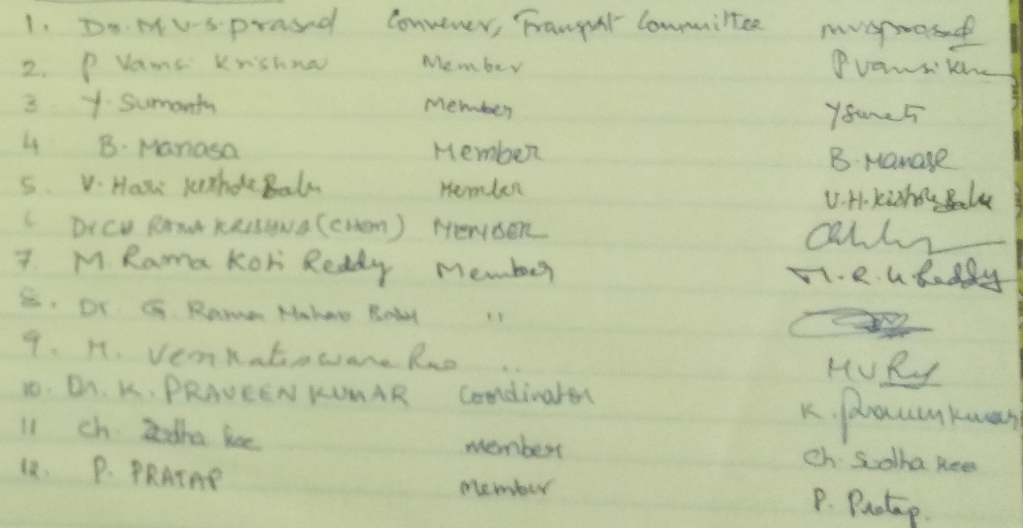 1. Dr. M V.S. Prasad Convener, Transport Committee mvsprasad
2. P Vamsi Krishna Member P vamsi
3 Y. Sumanth Member
4 B. Manasa Member B. Manasa
5. V. Hari Kishore Babu Member V.H. Kishore Babu
6 Dr CH RAMA KRISHNA (CHEM) MEMBER
7 M Rama Koti Reddy Member M. R. K Reddy
8. Dr. G. Rama Mohan Babu "
9. M. Venkateswara Rao " M V Rao
10. Dr. K. PRAVEEN KUMAR Coordinator K. Praveen kumar
11 Ch. Sudha Ree member Ch. Sudha Ree
12. P. PRATAP Member P. Pratap.